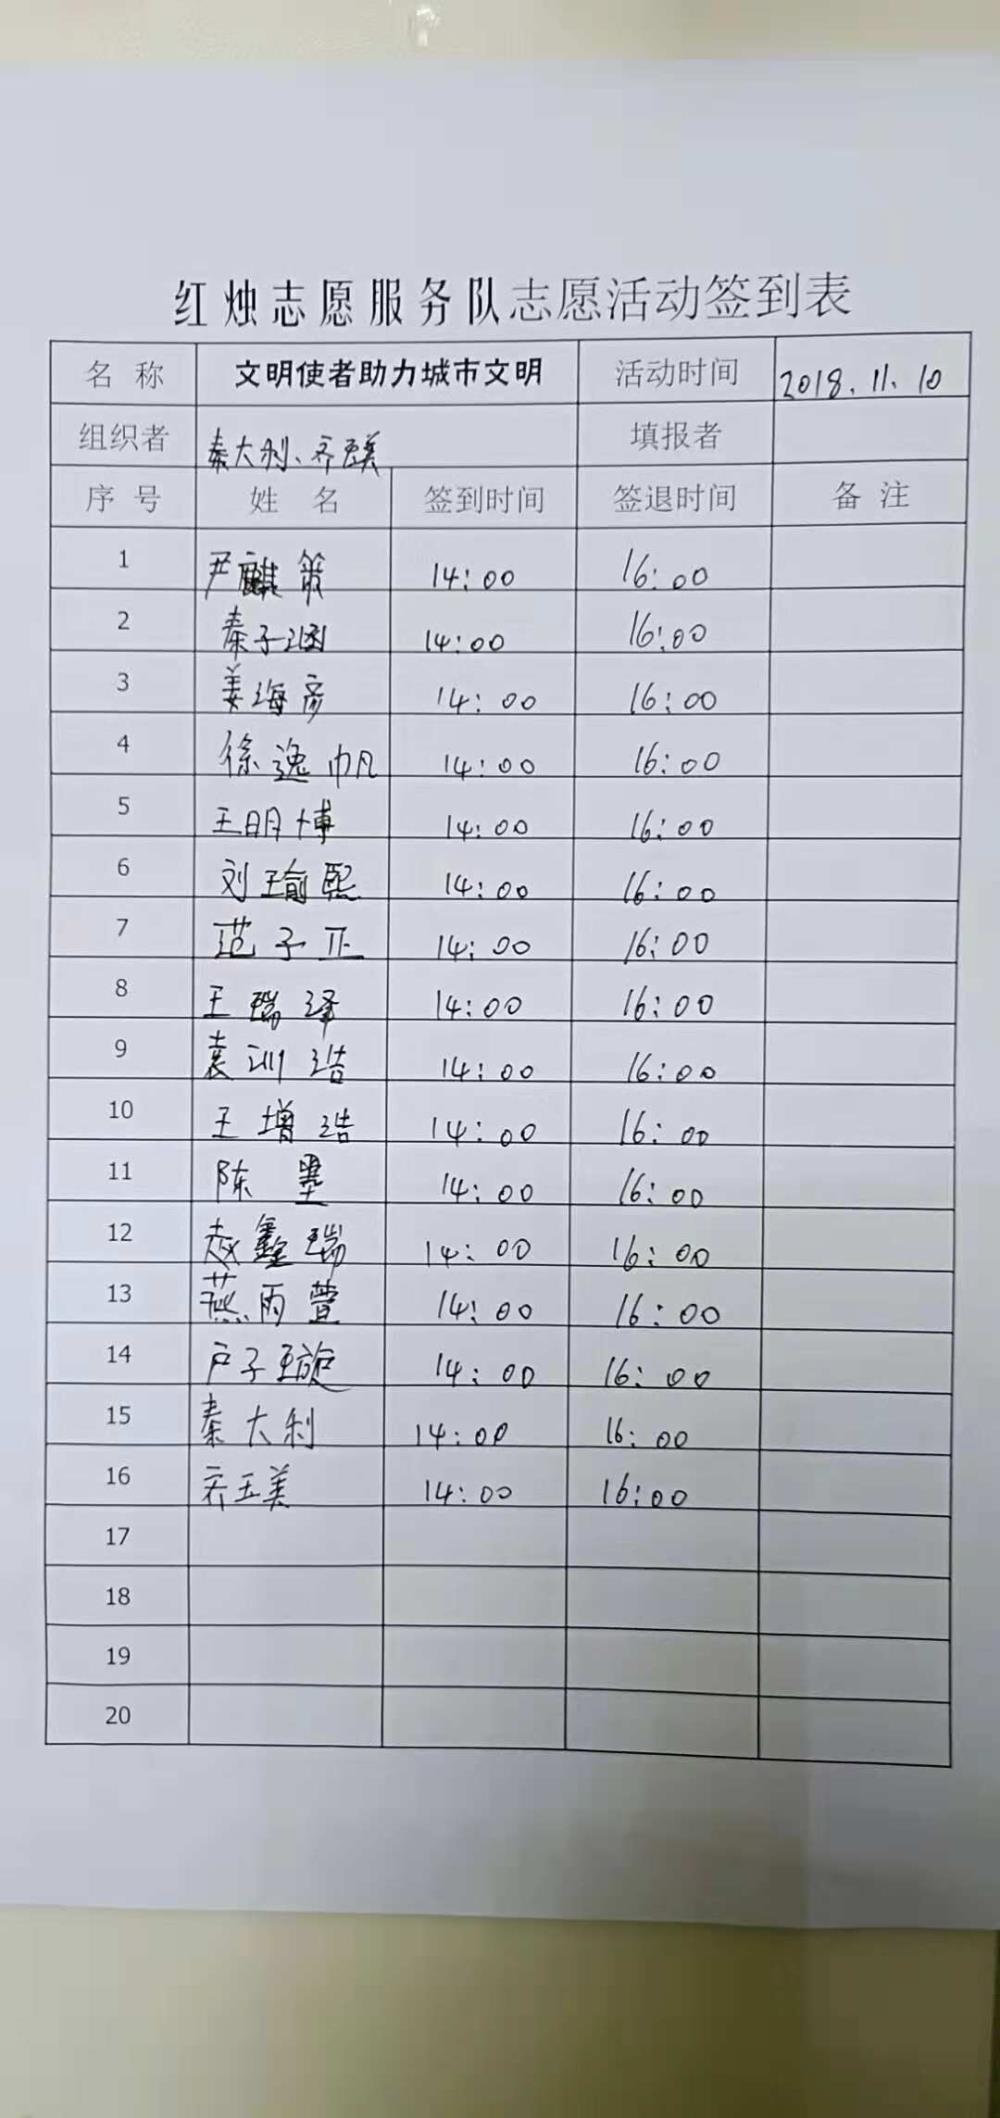 红烛志愿服务队志愿活动签到表
名 称 文明使者助力城市文明 活动时间 2018.11.10
组织者 秦大利、齐玉美 填报者
序 号 姓 名 签到时间 签退时间 备 注
1 尹麒策 14:00 16:00
2 秦子涵 14:00 16:00
3 姜海彦 14:00 16:00
4 徐逸帆 14:00 16:00
5 王明博 14:00 16:00
6 刘瑜熙 14:00 16:00
7 范子正 14:00 16:00
8 王瑞泽 14:00 16:00
9 袁训浩 14:00 16:00
10 王增浩 14:00 16:00
11 陈墨 14:00 16:00
12 赵鑫瑞 14:00 16:00
13 燕雨萱 14:00 16:00
14 卢子璇 14:00 16:00
15 秦大利 14:00 16:00
16 齐玉美 14:00 16:00
17
18
19
20